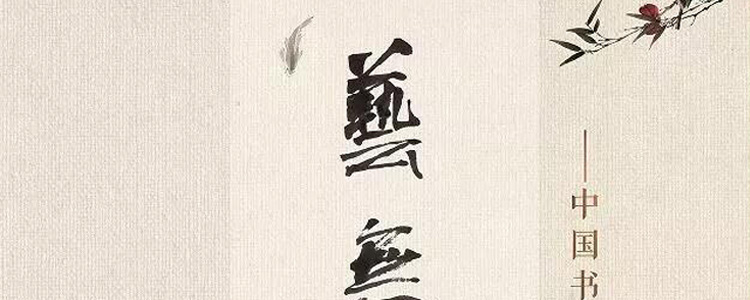 藝無
——中国书